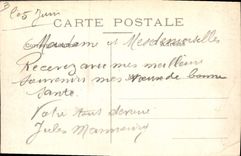 3
5 Juin
CARTE POSTALE
Madam et Mesdemoiselles
Recevez avec mes meilleurs
souvenirs mes vœux de bonne
sante.
Votre tout dévoué
Jules